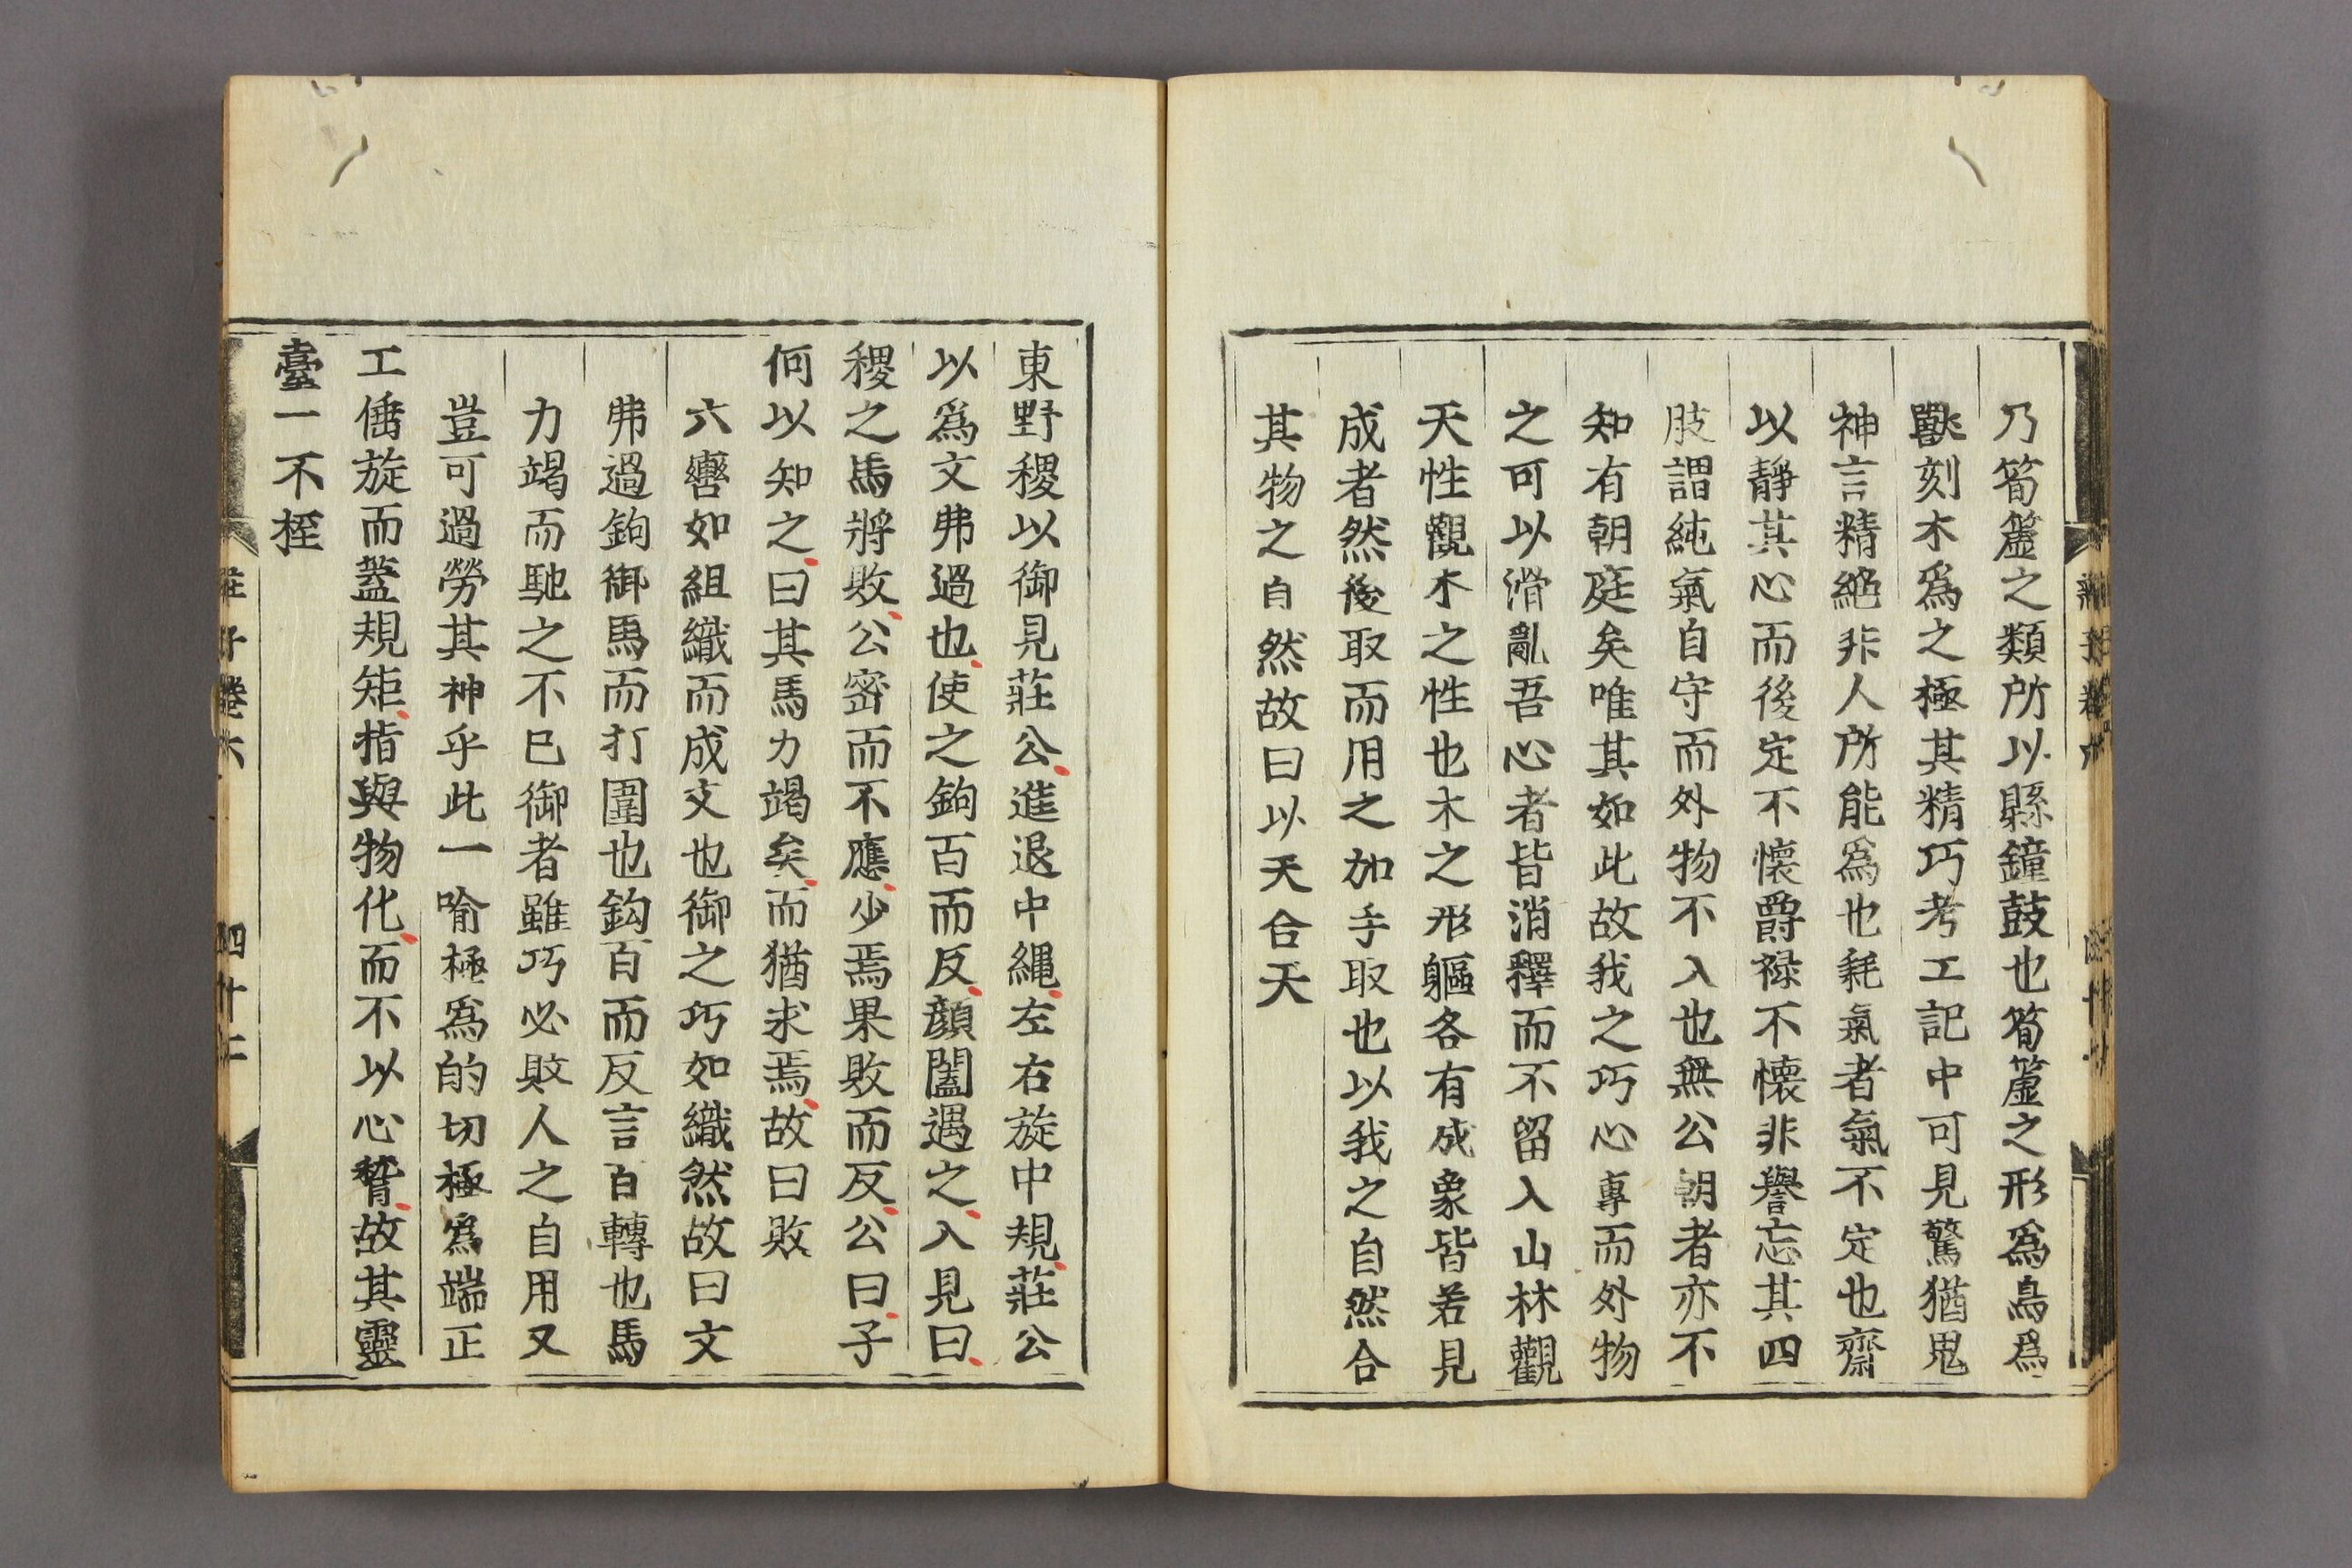 乃筍簴之類所以縣鐘鼓也筍簴之形爲鳥爲
獸刻木爲之極其精巧考工記中可見驚猶鬼
神言精絕非人所能爲也耗氣者氣不定也齋
以靜其心而後定不懷爵禄不懷非譽忘其四
肢謂純氣自守而外物不入也無公朝者亦不
知有朝庭矣唯其如此故我之巧心專而外物
之可以滑亂吾心者皆消釋而不留入山林觀
天性觀木之性也木之形軀各有成象皆若見
成者然後取而用之加手取也以我之自然合
其物之自然故曰以天合天
東野稷以御見莊公進退中繩左右旋中規莊公
以爲文弗過也使之鉤百而反顏闔遇之入見曰
稷之馬將敗公密而不應少焉果敗而反公曰子
何以知之曰其馬力竭矣而猶求焉故曰敗
六轡如組織而成文也御之巧如織然故曰文
弗過鉤御馬而打圍也鈎百而反言百轉也馬
力竭而馳之不已御者雖巧必敗人之自用又
豈可過勞其神乎此一喻極爲的切極爲端正
工倕旋而蓋規矩指與物化而不以心稽故其靈
臺一不桎
莊子卷六
四十二